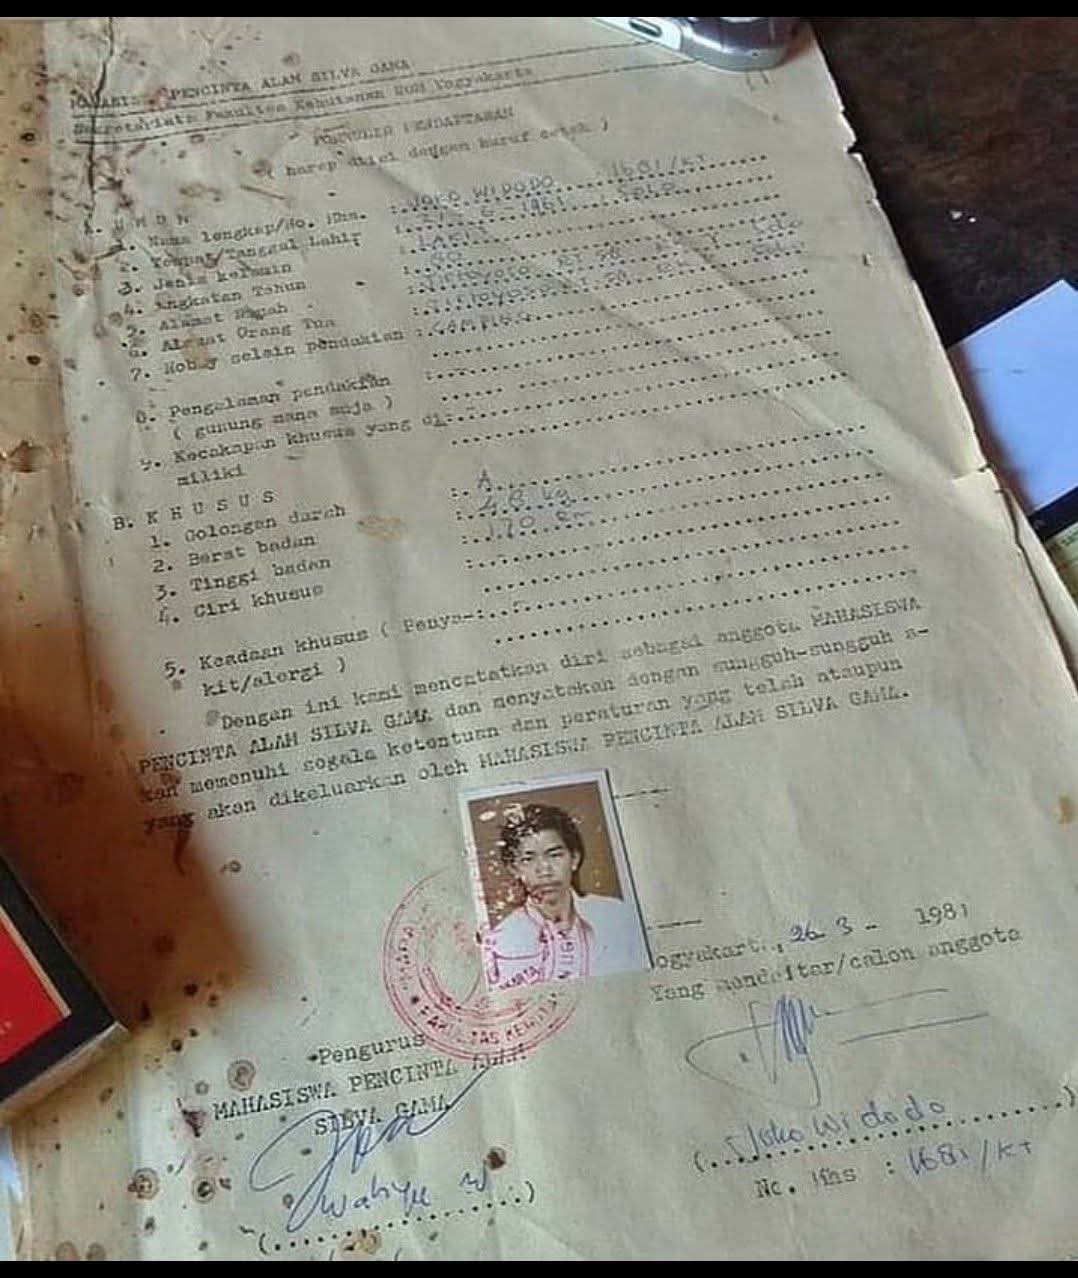 PENCINTA ALAM SILVA GAMA
Sekretariat: Fakultas Kehutanan UGM Yogyakarta
FORMULIR PENDAFTARAN
( harap diisi dengan huruf cetak )
A. U M U M
1. Nama lengkap/No. Mhs. : JOKO WIDODO 1681/KT
2. Tempat/Tanggal Lahir : 6 1961 SOLO
3. Jenis kelamin : LAKI2
4. Angkatan Tahun : 80
5. Alamat : Tirtoyoso RT 28 Solo
6. Alamat Orang Tua : Tirtoyoso RT 28
7. Hobby selain pendakian : CAMPING
8. Pengalaman pendakian :
( gunung mana saja )
9. Kecakapan khusus yang di- :
miliki
B. K H U S U S
1. Golongan darah : A
2. Berat badan : 48 kg
3. Tinggi badan : 170 cm
4. Ciri khusus :
5. Keadaan khusus ( Penya- :
kit/alergi )
Dengan ini kami mencatatkan diri sebagai anggota MAHASISWA
PENCINTA ALAM SILVA GAMA dan menyatakan dengan sungguh-sungguh a-
kan memenuhi segala ketentuan dan peraturan yang telah ataupun
yang akan dikeluarkan oleh MAHASISWA PENCINTA ALAM SILVA GAMA.
ogyakart , 26 3 - 1981
Yang mendaftar/calon anggota
Pengurus
MAHASISWA PENCINTA ALAM
SILVA GAMA
(Wahyu W)
(Joko Widodo)
No. Mhs : 1681/KT